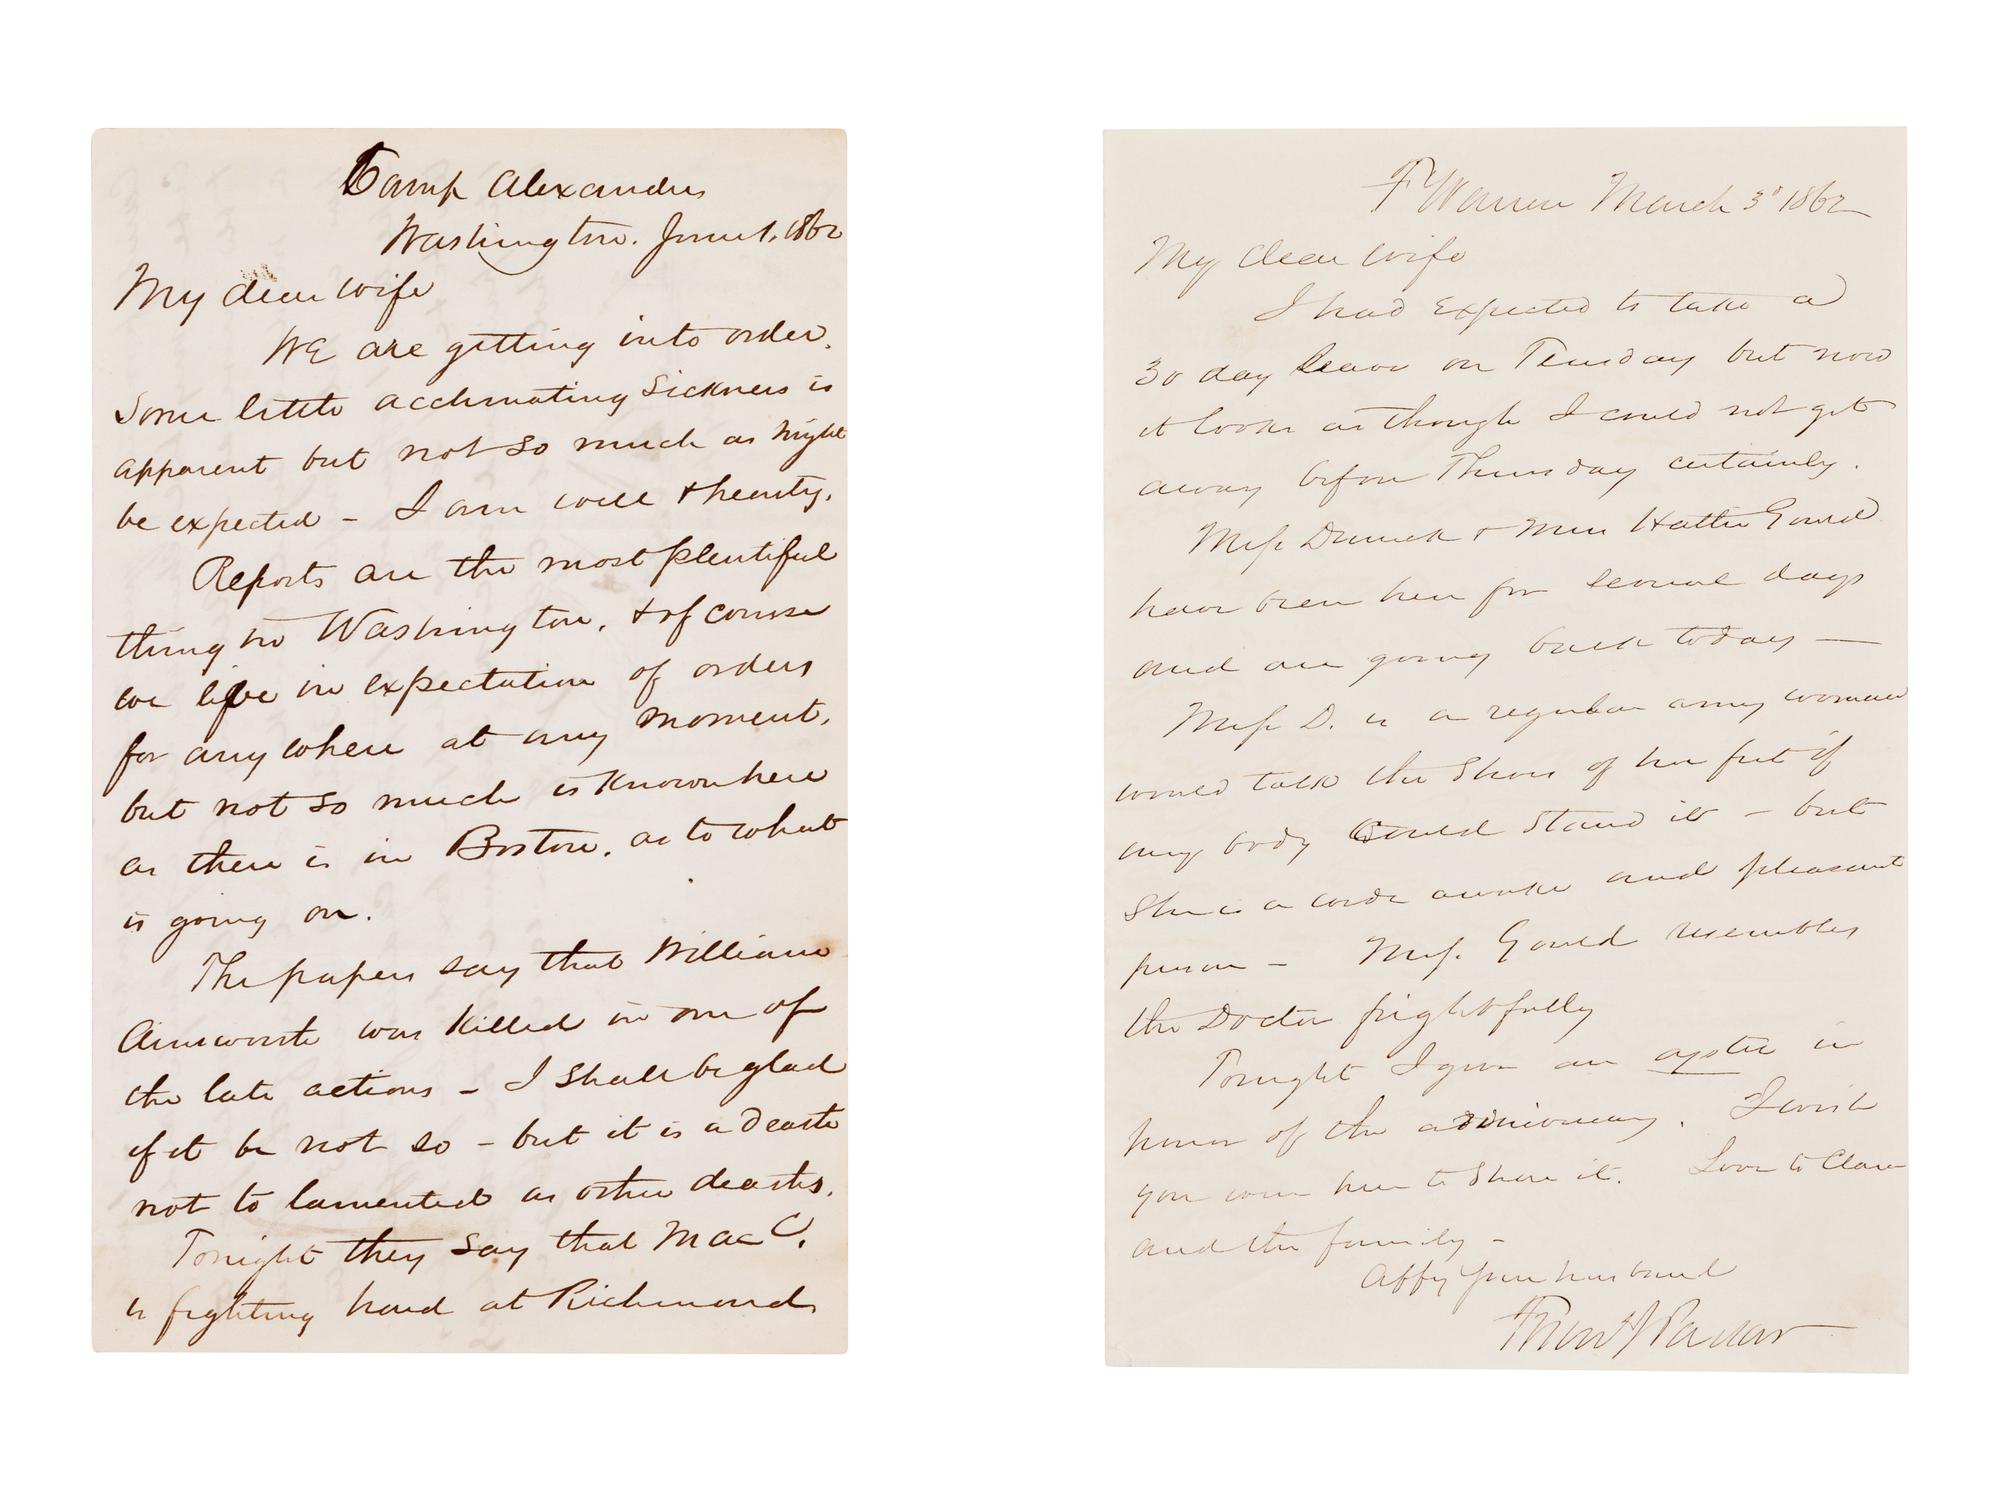 Camp Alexander
Washington. June 1. 1862
My dear wife
WE are getting into order.
Some little acclimating sickness is
apparent but not so much as might
be expected - I am well & hearty.
Reports are the most plentiful
thing in Washington, & of course
we live in expectation of orders
for any where at any moment,
but not so much is known here
as there is in Boston, as to what
is going on.
The papers say that William
Ainsworth was killed in one of
the late actions - I shall be glad
if it be not so - but it is a death
not to lamented as other deaths.
Tonight they say that Mac C.
is fighting hard at Richmond
Ft Warren March 3d 1862
My dear wife
I had expected to take a
30 day leave on Tuesday but now
it looks as though I could not get
away before Thursday certainly.
Miss & Miss Hattie Gould
have been here for several days
and are going back today —
Miss D. is a regular army woman
would talk the shoes of her feet if
any body could stand it - but
She is a wide awake and pleasant
person - Miss. Gould resembles
the Doctor frightfully
Tonight I give an in
honor of the . I wish
you were here to share it. Love to Clara
and the family -
Affy your husband